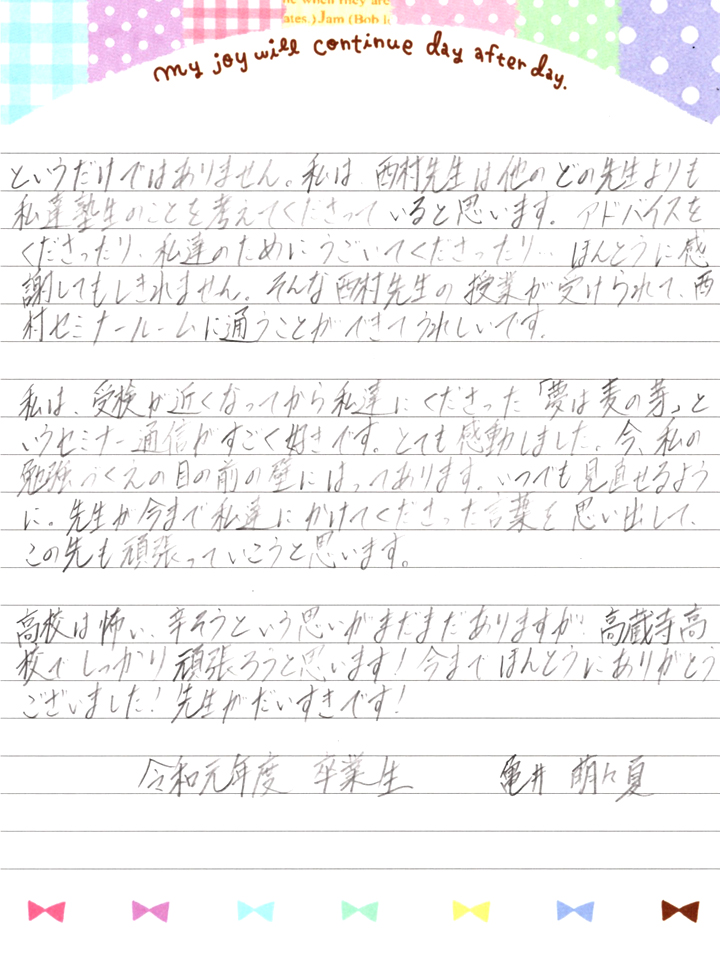 he when they are
ates.) Jam (Bob l
my joy will continue day after day.
というだけではありません。私は、西村先生は他のどの先生よりも
私達塾生のことを考えてくださっていると思います。アドバイスを
くださったり、私達のためにうごいてくださったり… ほんとうに感
謝してもしきれません。そんな西村先生の授業が受けられて、西
村セミナールームに通うことができてうれしいです。
私は、受検が近くなってから私達にくださった「夢は麦の芽」と
いうセミナー通信がすごく好きです。とても感動しました。今、私の
勉強づくえの目の前の壁にはってあります。いつでも見直せるよう
に。先生が今まで私達にかけてくださった言葉を思い出して、
この先も頑張っていこうと思います。
高校は怖い、辛そうという思いがまだまだありますが、高蔵寺高
校でしっかり頑張ろうと思います！今までほんとうにありがとう
ございました！先生がだいすきです！
令和元年度 卒業生 亀井 萌々夏